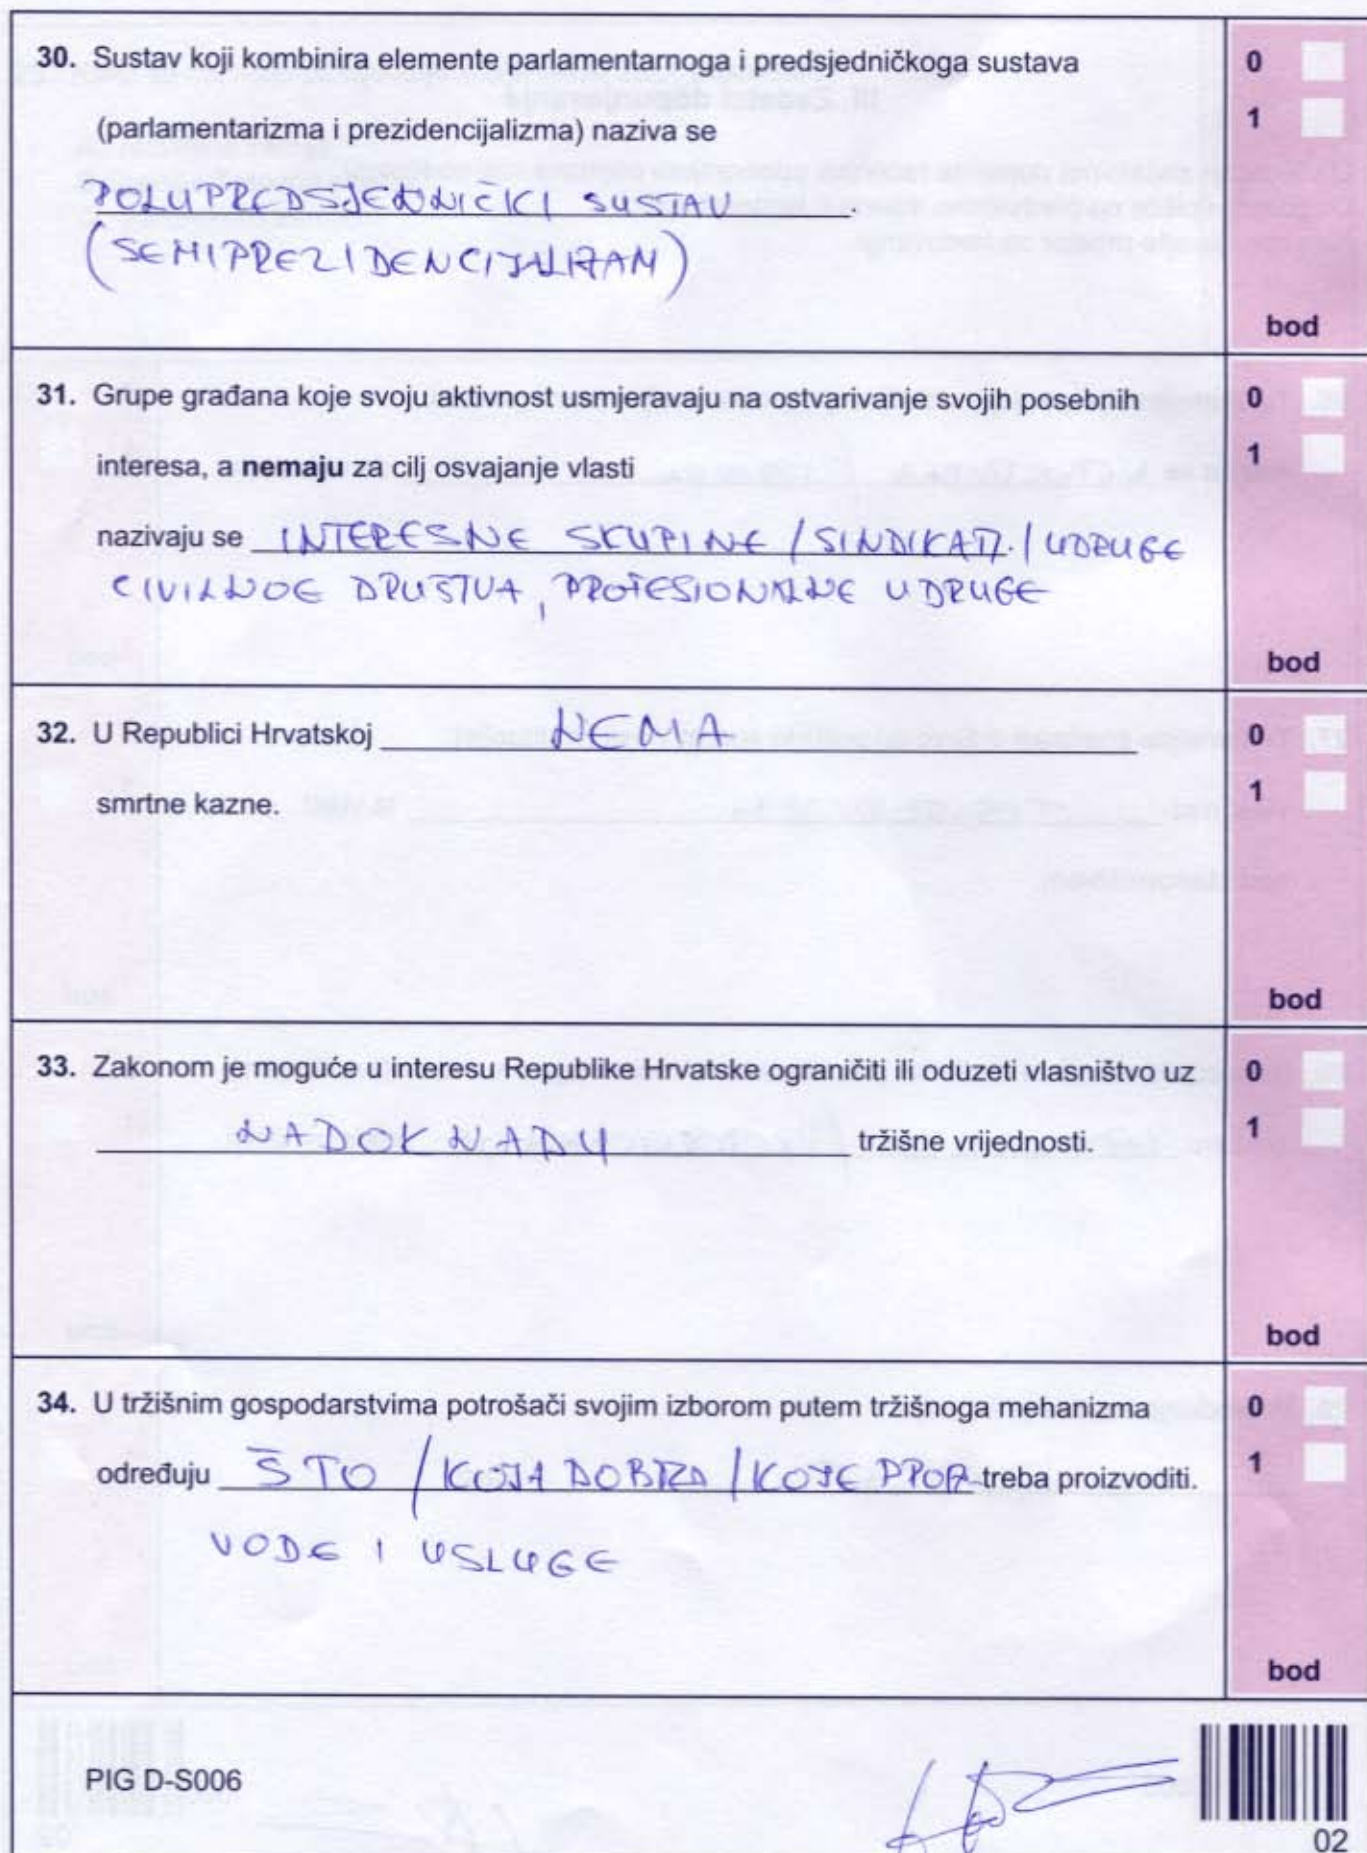 30. Sustav koji kombinira elemente parlamentarnoga i predsjedničkoga sustava
0
(parlamentarizma i prezidencijalizma) naziva se
1
POLUPREDSJEDNIČKI SUSTAV.
(SEMIPREZIDENCIJALIZAM)
bod
31. Grupe građana koje svoju aktivnost usmjeravaju na ostvarivanje svojih posebnih
0
interesa, a nemaju za cilj osvajanje vlasti
1
nazivaju se INTERESNE SKUPINE / SINDIKATI / UDRUGE
CIVILNOG DRUŠTVA, PROFESIONALNE UDRUGE
bod
32. U Republici Hrvatskoj NEMA
0
smrtne kazne.
1
bod
33. Zakonom je moguće u interesu Republike Hrvatske ograničiti ili oduzeti vlasništvo uz
0
NADOKNADU tržišne vrijednosti.
1
bod
34. U tržišnim gospodarstvima potrošači svojim izborom putem tržišnoga mehanizma
0
određuju ŠTO / KOJA DOBRA / KOJE PROIZ- treba proizvoditi.
1
VODE I USLUGE
bod
PIG D-S006
02